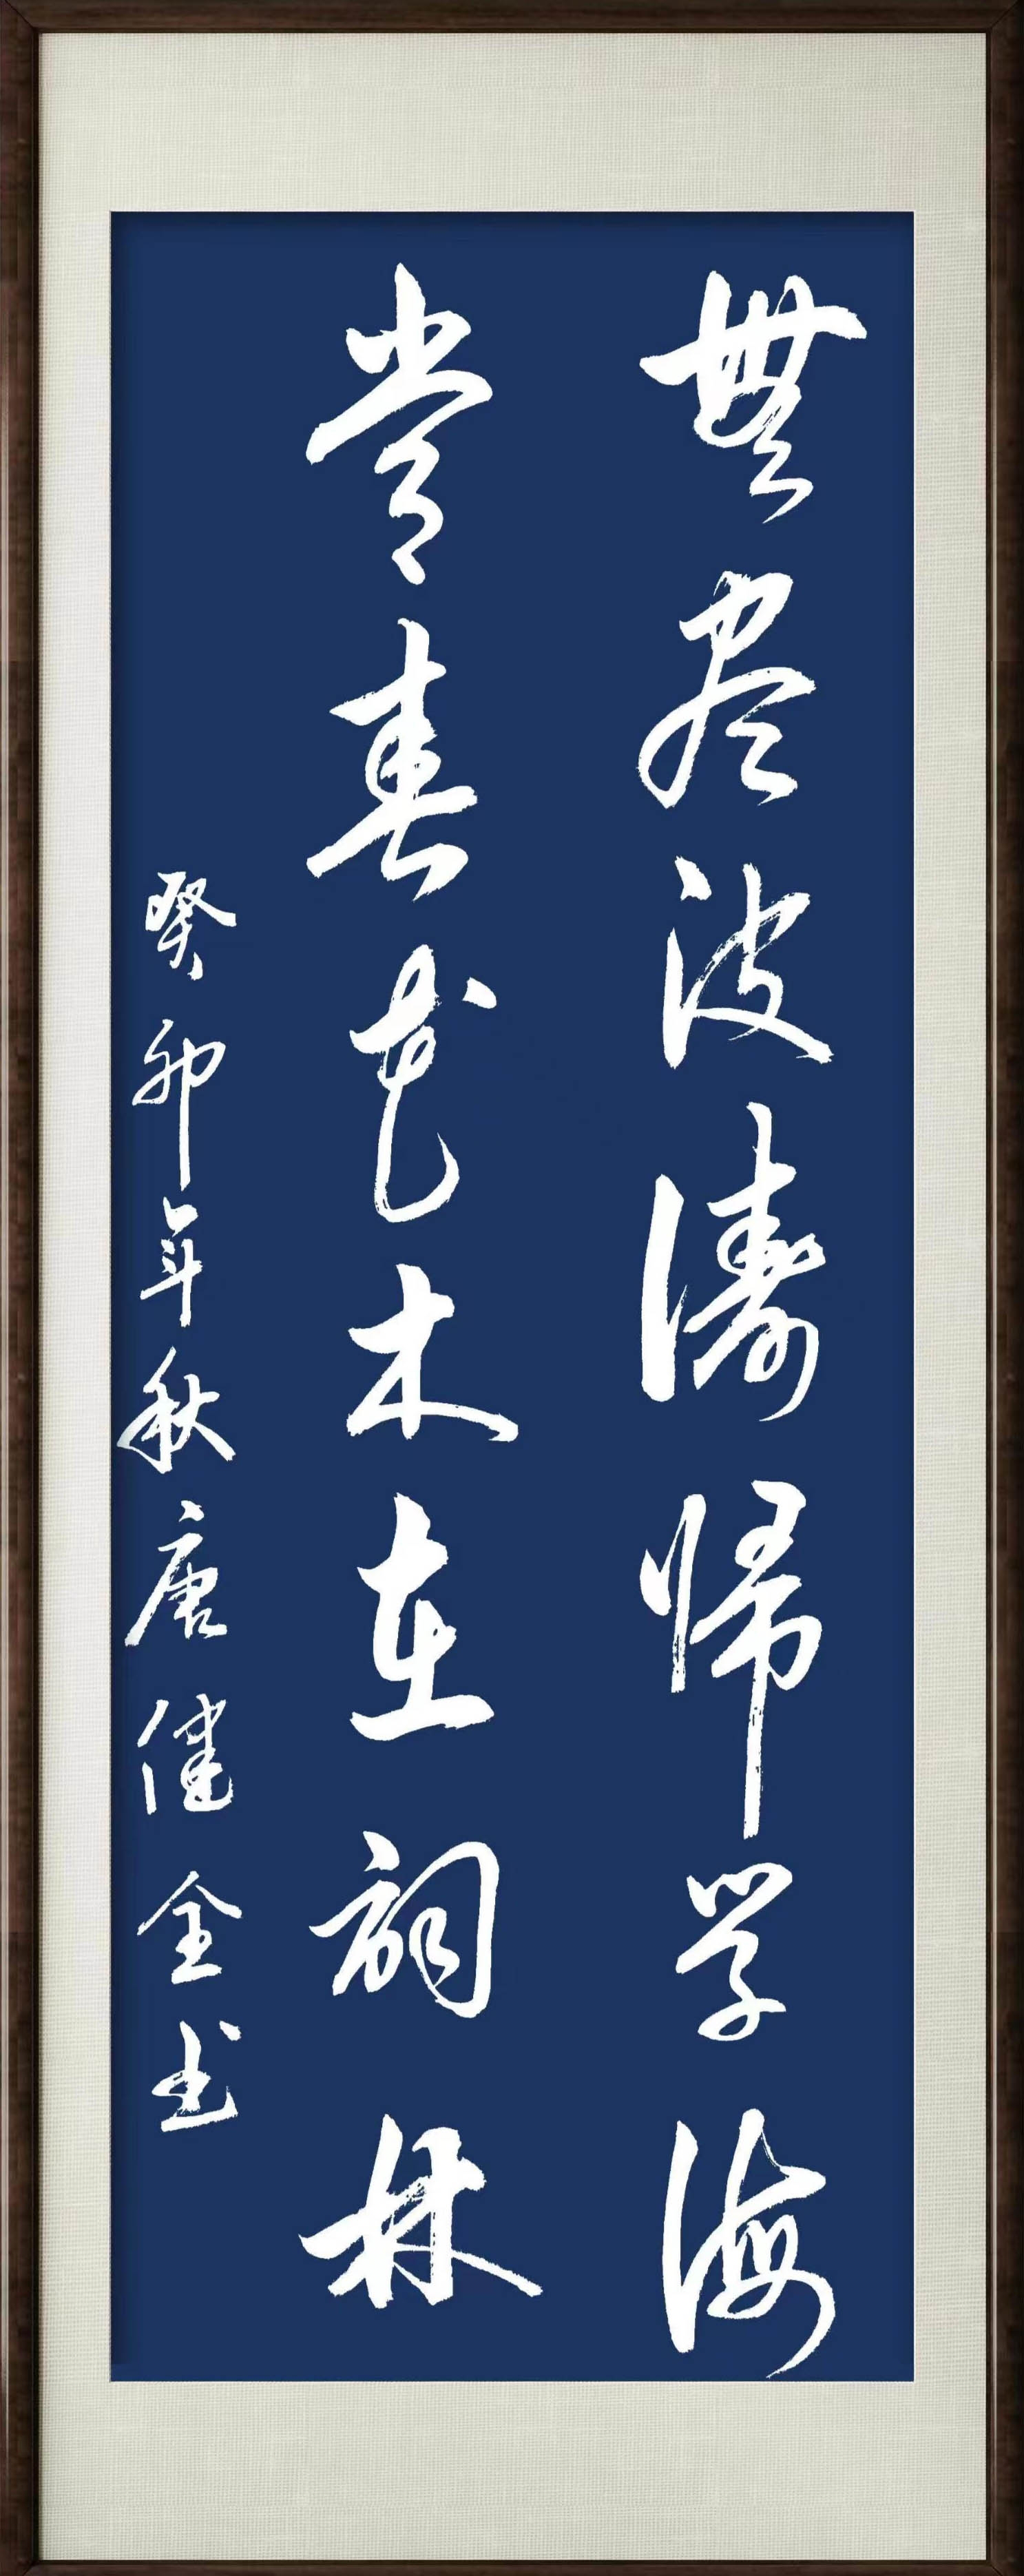 無尽波涛归学海
常春花木在词林
癸卯年秋唐健全书